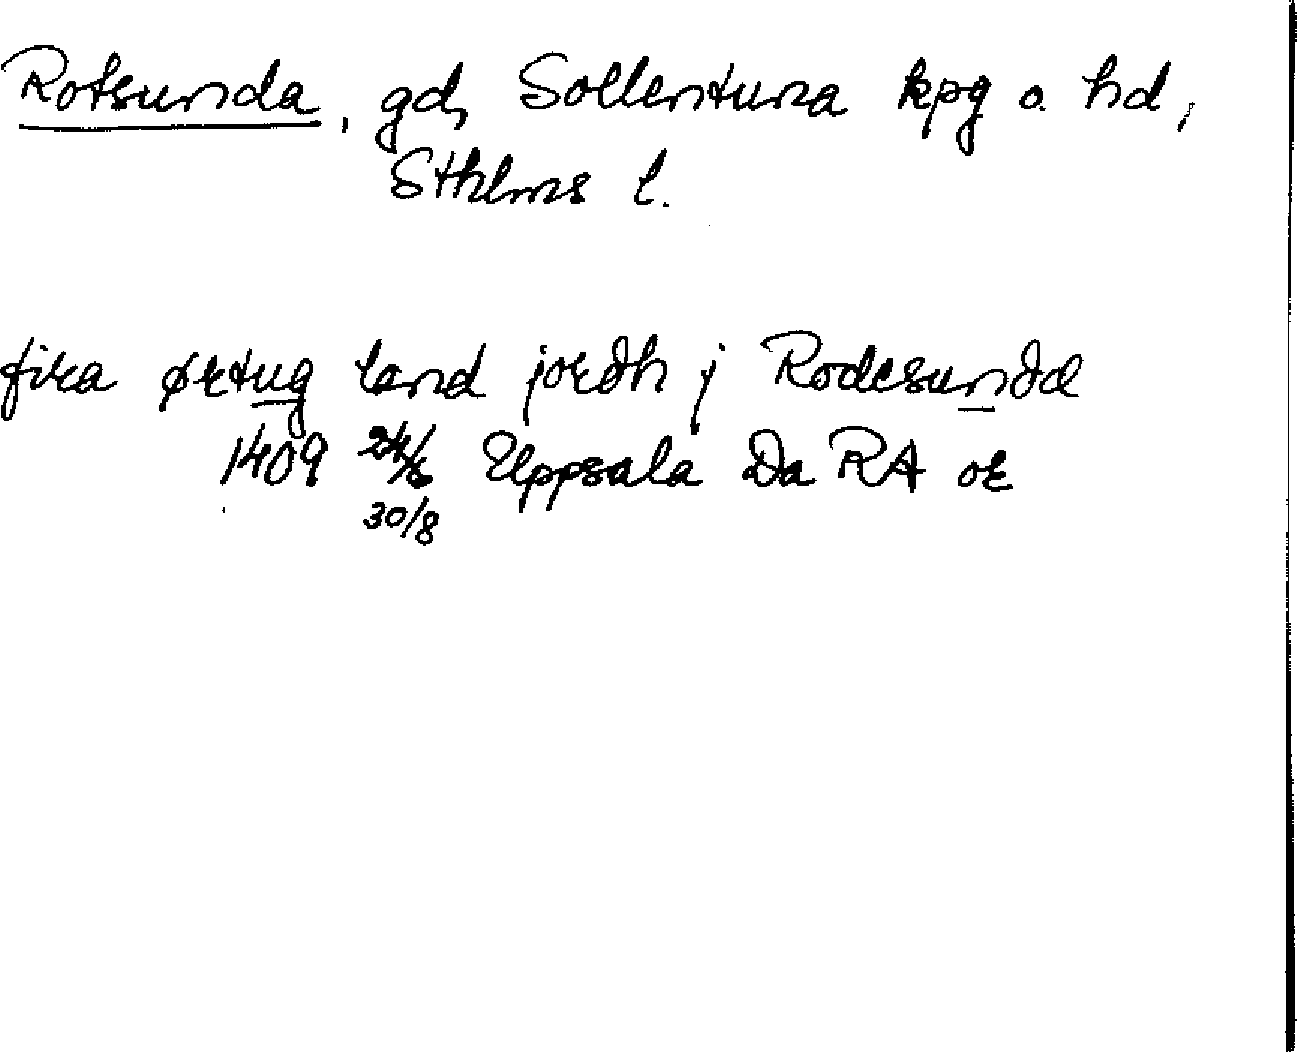 Rotsunda, gd, Sollentuna kpg o. hd,
Sthlms l.
fira ørtug land jordh j Rodesunda
1409 24/8 Uppsala Da RA or
30/8